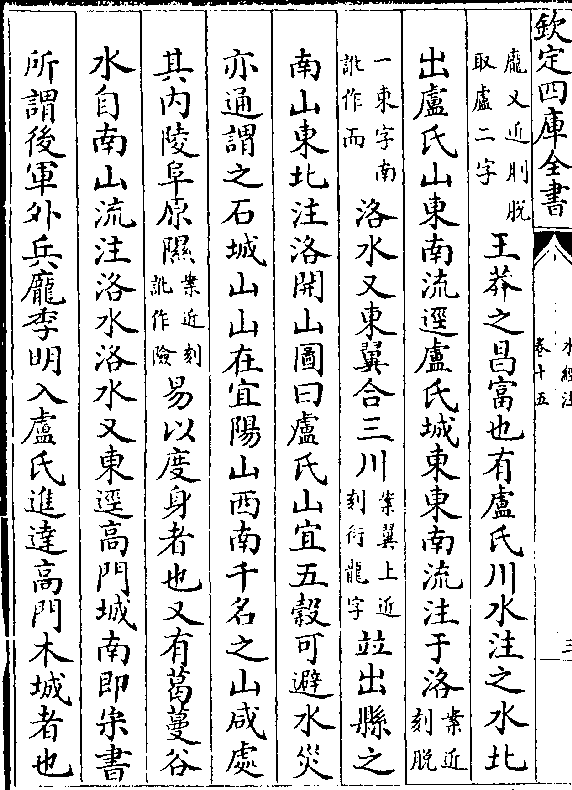 欽定四庫全書
水經注
卷十五
三
龎又近刻脫
取盧二字
王莽之昌富也有盧氏川水注之水北
出盧氏山東南流逕盧氏城東東南流注于洛
案近
刻脫
一東字南
訛作而
洛水又東翼合三川
案翼上近
刻衍龍字
並出縣之
南山東北注洛開山圖曰盧氏山宜五榖可避水災
亦通謂之石城山山在宜陽山西南千名之山咸處
其内陵阜原隰
案近刻
訛作險
易以度身者也又有葛蔓谷
水自南山流注洛水洛水又東逕高門城南即宋書
所謂後軍外兵龎季明入盧氏進達高門木城者也